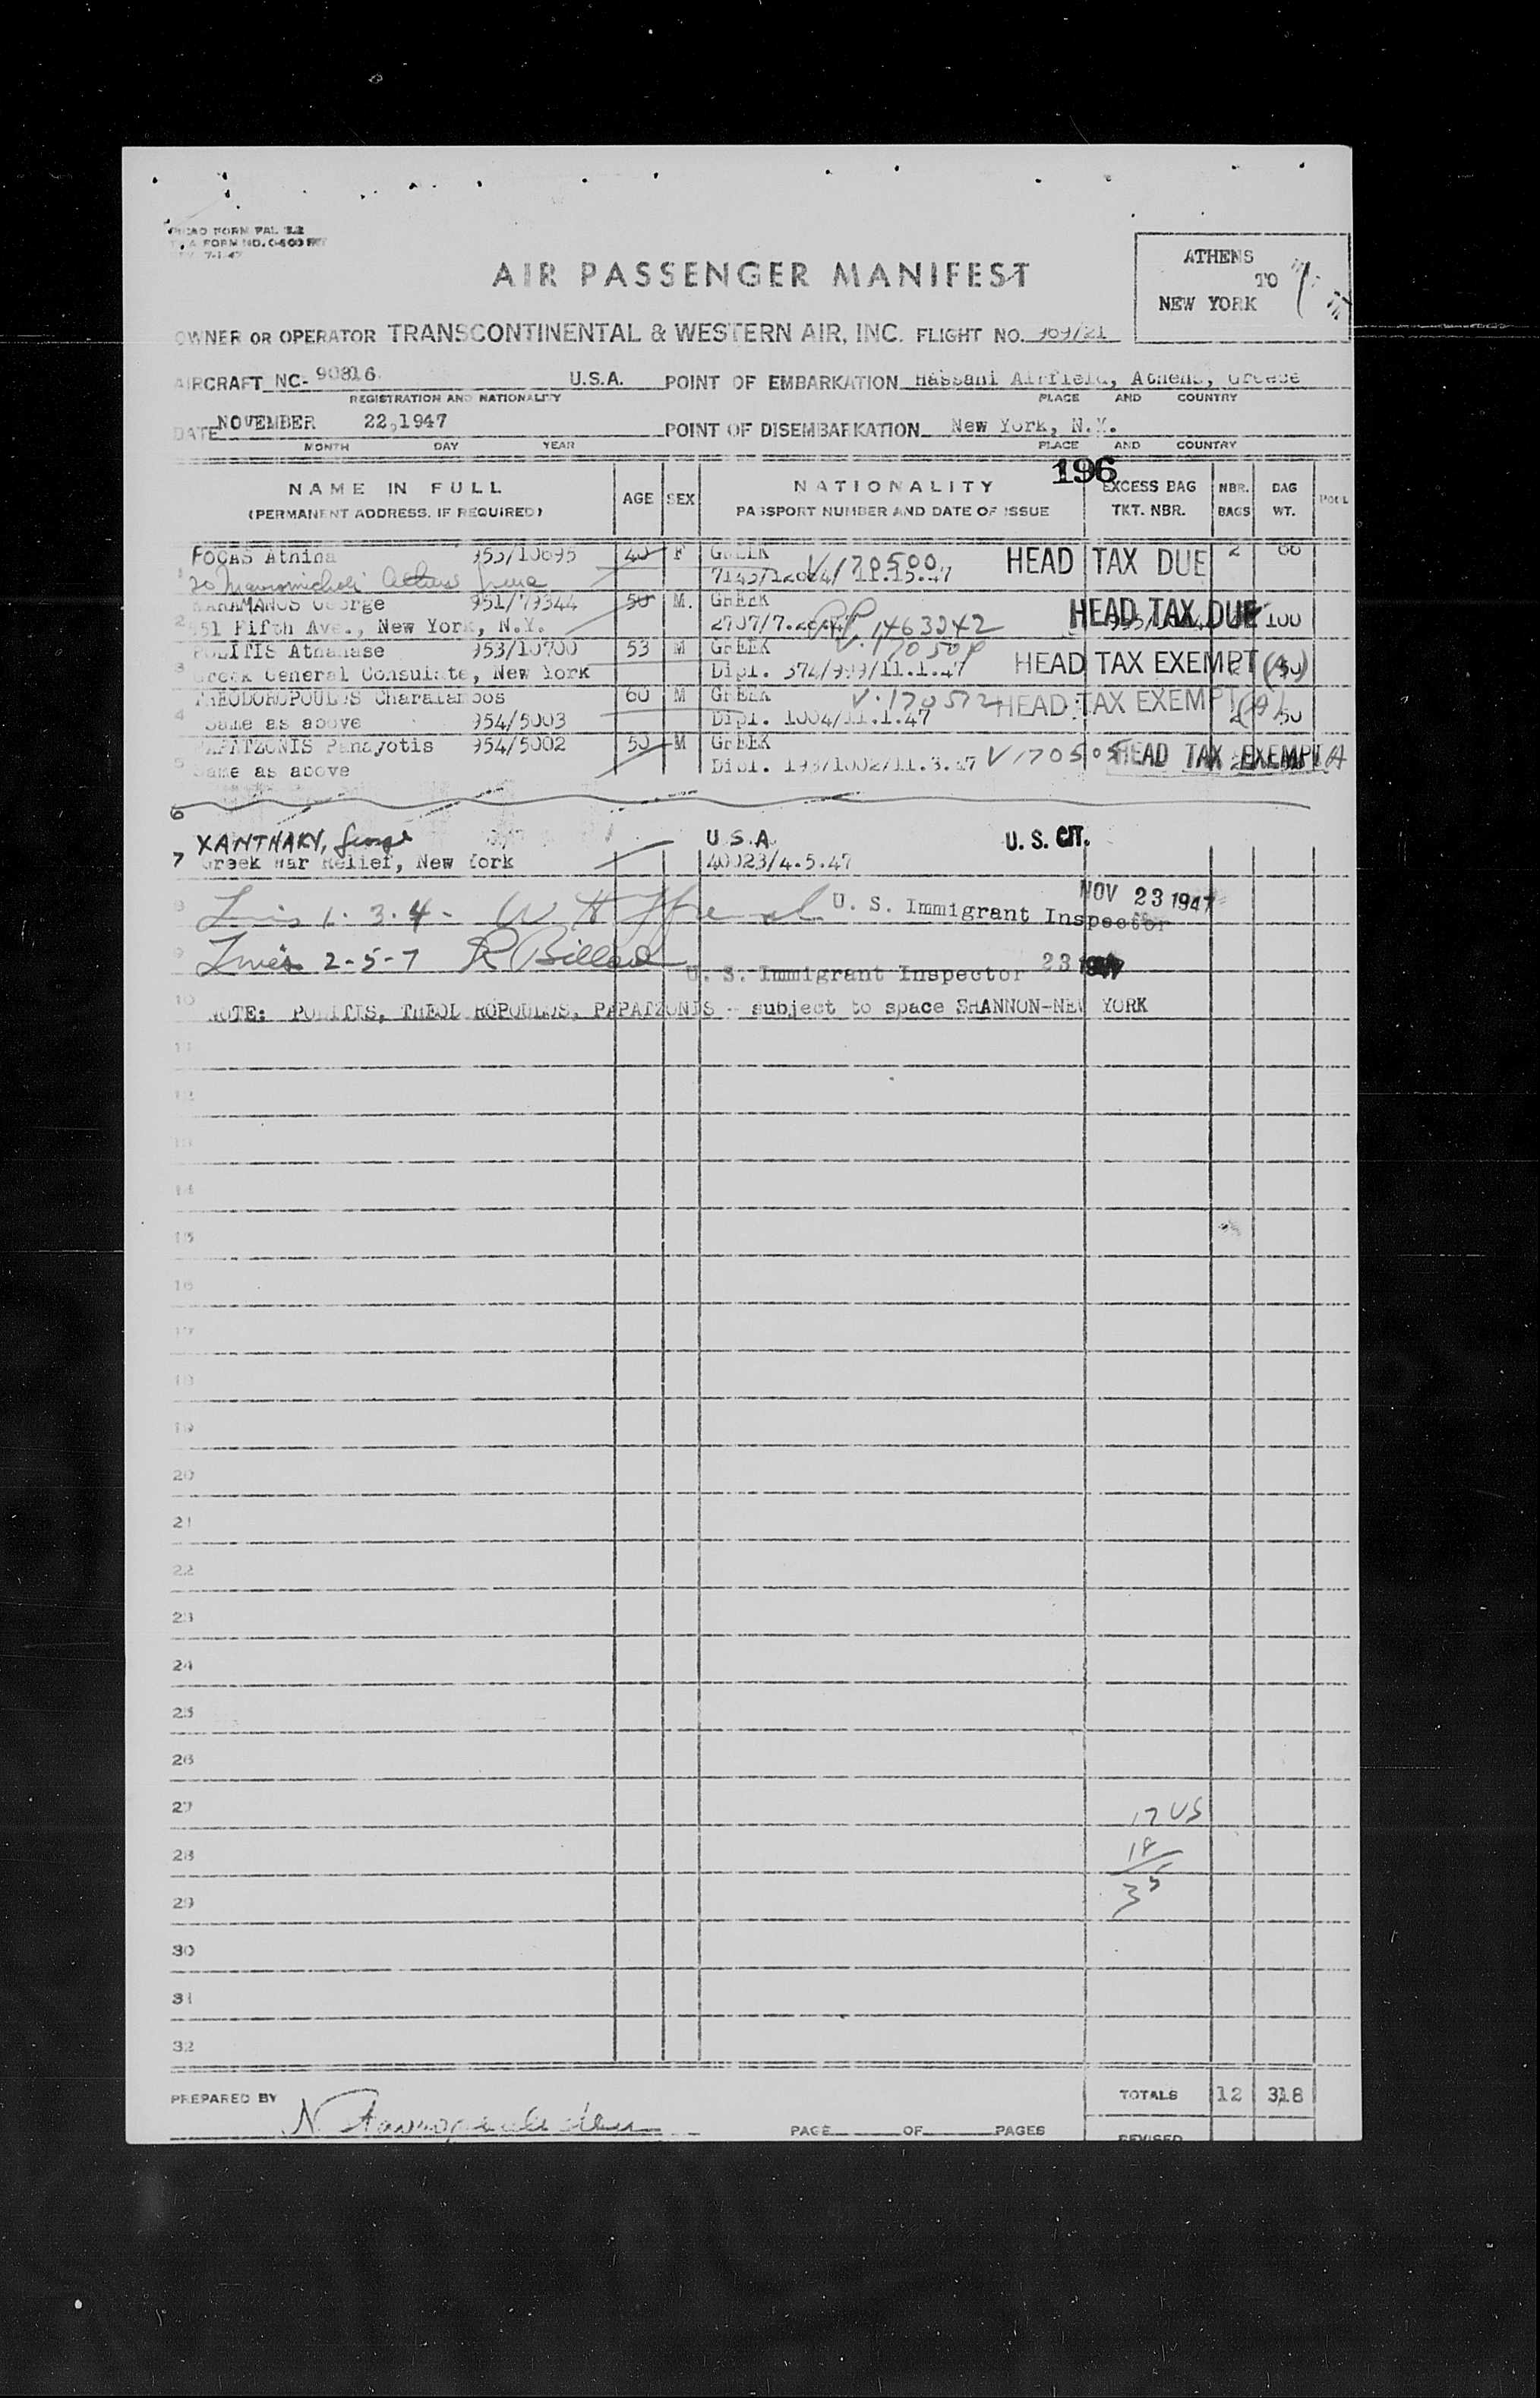 AIR PASSENGER MANIFEST
ATHENS
TO
NEW YORK
OWNER OR OPERATOR TRANSCONTINENTAL & WESTERN AIR, INC. FLIGHT NO. 969/21
AIRCRAFT NC- 90816 U.S.A. POINT OF EMBARKATION Hassani Airfield, Athens, Greece
REGISTRATION AND NATIONALITY PLACE AND COUNTRY
DATE NOVEMBER 22,1947 POINT OF DISEMBARKATION New York, N.Y.
MONTH DAY YEAR PLACE AND COUNTRY
196
NAME IN FULL AGE SEX NATIONALITY EXCESS BAG NBR. BAG POOL
(PERMANENT ADDRESS, IF REQUIRED) PASSPORT NUMBER AND DATE OF ISSUE TKT. NBR. BAGS WT.
FOCAS Athina 953/10695 40 F GREEK V170500 HEAD TAX DUE 2 60
1 20 Athens 11.15.47
KARAMANOS George 951/79344 50 M. GREEK HEAD TAX DUE 100
2 551 Fifth Ave., New York, N.Y. 1463242
POLITIS Athanase 953/10700 53 M GREEK HEAD TAX EXEMPT
3 Greek General Consulate, New York Dipl. 574/999/11.1.47 50
THEODOROPOULOS Charalambos 60 M GREEK V.170512 HEAD TAX EXEMPT
4 Same as above 954/5003 Dipl. 1004/11.1.47 50
PAPATZONIS Panayotis 954/5002 50 M GREEK V170505 HEAD TAX EXEMPT
5 Same as above Dipl. 193/1002/11.3.47
6
XANTHAKY, George U.S.A. U.S. CIT.
7 Greek War Relief, New York 40023/4.5.47
8 Lines 1.3.4- U. S. Immigrant Inspector NOV 23 1947
9 Lines 2-5-7 U. S. Immigrant Inspector 23 1947
10 NOTE: POLITIS, THEODOROPOULOS, PAPATZONIS - subject to space SHANNON-NEW YORK
11
12
13
14
15
16
17
18
19
20
21
22
23
24
25
26
27 17 US
28 18
29 35
30
31
32
PREPARED BY TOTALS 12 318
PAGE OF PAGES REVISED